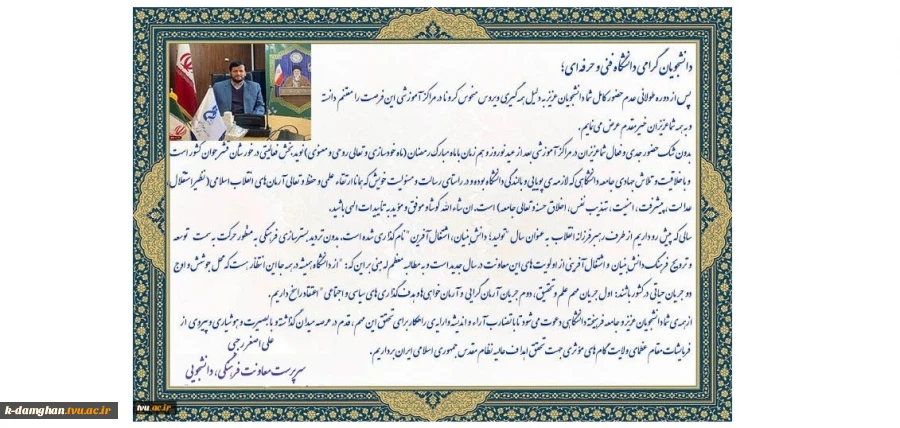 دانشجویان گرامی دانشگاه فنی و حرفه ای؛
پس از دوره طولانی عدم حضور کامل شما دانشجویان عزیز به دلیل همه گیری ویروس منحوس کرونا در مراکز آموزشی این فرصت را مغتنم دانسته
و به همه شما عزیزان خیر مقدم عرض می نمایم.
بدون شک حضور جدی و فعال شما عزیزان در مراکز آموزشی بعد از عید نوروز و هم زمان با ماه مبارک رمضان (ماه خودسازی و تعالی روحی و معنوی) نوید بخش فعالیتی در خور شان قشر جوان کشور است
و با خلاقیت و تلاش جهادی جامعه دانشگاهی که لازمه ی پویایی و بالندگی دانشگاه بوده و در راستای رسالت و مسئولیت خویش که همانا ارتقاء علمی و حفظ و تعالی آرمان های انقلاب اسلامی (نظیر استقلال،
عدالت، پیشرفت، امنیت، تهذیب نفس، اخلاق حسنه و تعالی جامعه) است، ان شاء الله کوشا و موفق و موید به تاییدات الهی باشید.
سالی که پیش رو داریم از طرف رهبر فرزانه انقلاب به عنوان سال "تولید؛ دانش بنیان، اشتغال آفرین" نام گذاری شده است، بدون تردید بسترسازی فرهنگی به منظور حرکت به سمت توسعه
و ترویج فرهنگ دانش بنیان و اشتغال آفرینی از اولویت های این معاونت در سال جدید است و به مطالبه معظم له مبنی بر این که: "از دانشگاه همیشه در همه جا این انتظار هست که محل جوشش و اوج
دو جریان حیاتی در کشور باشند: اول جریان مهم علم و تحقیق، دوم جریان آرمان گرایی و آرمان خواهی ها و هدف گذاری های سیاسی و اجتماعی" اعتقاد راسخ داریم.
از همه ی شما دانشجویان عزیز و جامعه فرهیخته دانشگاهی دعوت می شود تا با تضارب آراء و اندیشه و ارایه ی راهکار برای تحقق این مهم، قدم در عرصه میدان گذاشته و با بصیرت و هوشیاری و پیروی از
فرمایشات مقام عظمای ولایت گام های موثری جهت تحقق اهداف عالیه نظام مقدس جمهوری اسلامی ایران برداریم.
علی اصغر رجبی
سرپرست معاونت فرهنگی، دانشجویی
tvu.ac.ir
k-damghan.tvu.ac.ir